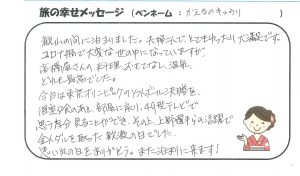 旅の幸せメッセージ（ペンネーム：かえるのキュウリ）
観山の間に泊まりました。夫婦2人で、とてもゆったり大満足です。
コロナ禍で大変な世の中になっていますが、
高橋屋さんの料理、おもてなし、温泉、
どれも最高でした。
今日は東京オリンピックのソフトボール決勝を、
夕食のあと、部屋に戻り、49型テレビで
思う存分見ることができ、その上、上野選手らの活躍で
金メダルを取った歓喜の日でした。
思い出の日をありがとう。また泊まりに来ます！